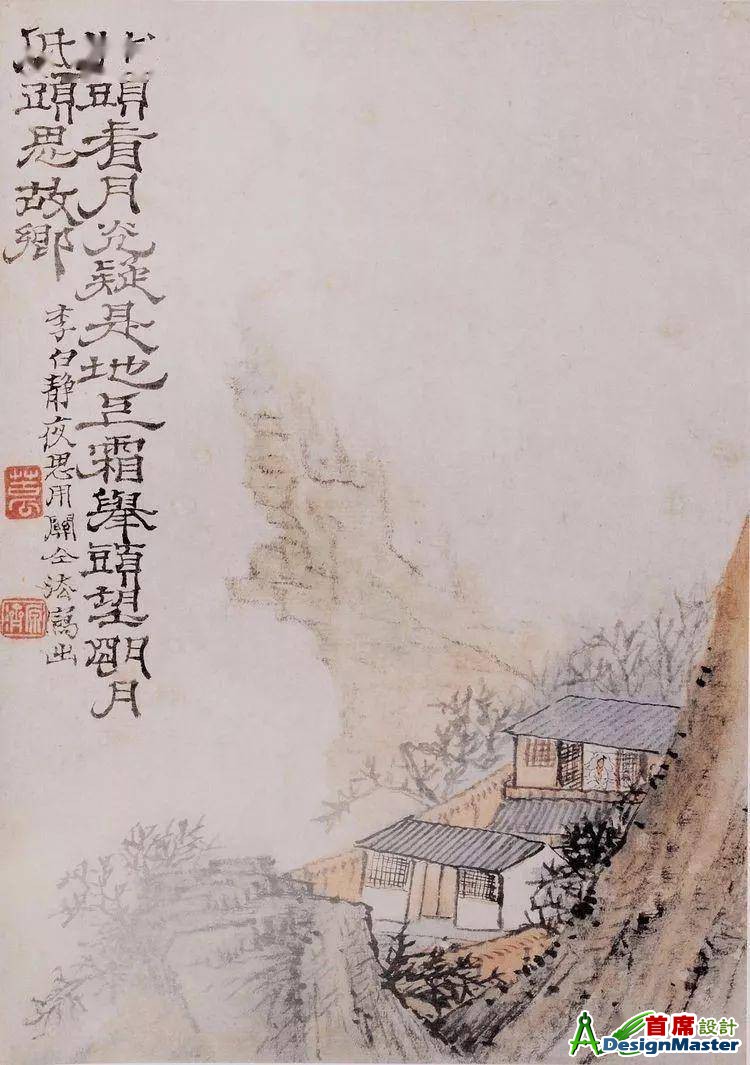 頭看月光疑是地上霜舉頭望朙月
低頭思故鄉
李白靜夜思用關仝法寫出
苦瓜
原濟
首席設計
ADesignMaster